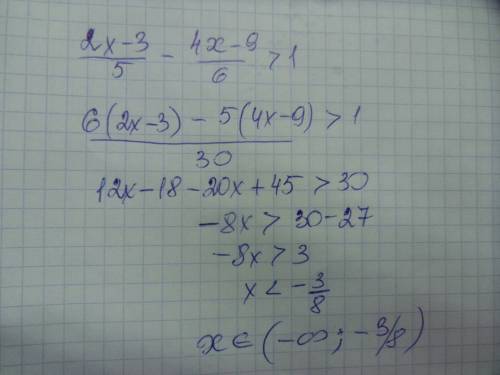 (2x-3)/5 - (4x-9)/6 > 1
(6(2x-3) - 5(4x-9))/30 > 1
12x-18-20x+45 > 30
-8x > 30-27
-8x > 3
x < -3/8
x ∈ (-∞; -3/8)